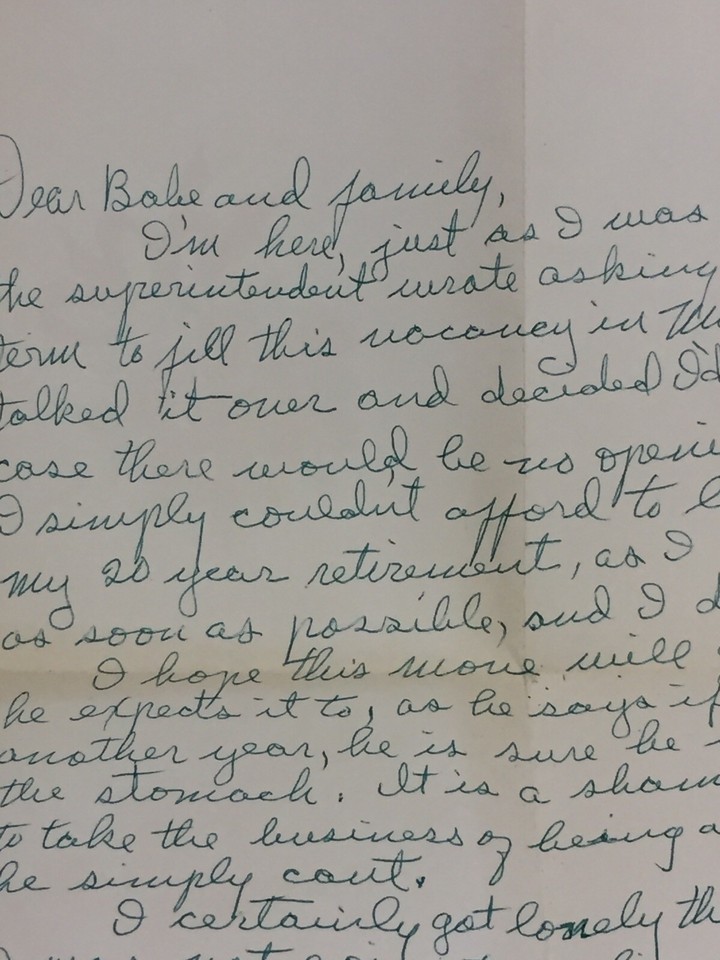 Dear Babe and family,
I'm here, just as I was
the superintendent wrote asking
term to fill this vacancy in
talked it over and decided I'd
case there would be no openi
I simply couldn't afford to l
my 20 year retirement, as I
as soon as possible, and I d
I hope this move will
he expects it to, as he says if
another year, he is sure he
the stomach. It is a sham
to take the business of being a
he simply can't.
I certainly got lonely th